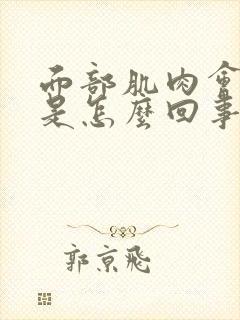 面部肌肉會
是怎麼回事
郭京飛